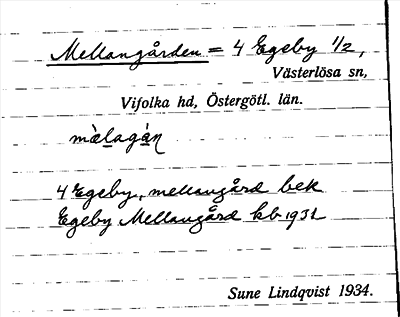 Mellangården = 4 Egeby 1/2,
Västerlösa sn,
Vifolka hd, Östergötl. län.
mὰlagán
4 Egeby, mellangård bek
Egeby Mellangård kb 1931
Sune Lindqvist 1934.